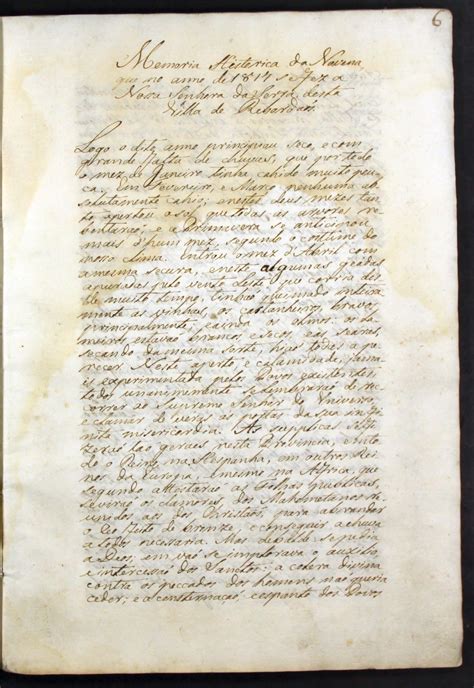 6
Memoria Historica da Novena
que no anno de 1817 se fez a
Nossa Senhora da Serra, desta
Villa de Rebordaõs.
Logo o dito anno principiou seco, e com
grande falta de chuvas, que por todo
o mez de Janeiro tinha cahido muito pou-
ca. Em Fevereiro, e Março nenhuma ab-
solutamente cahio; e nestes dous mezes tan-
to apertou o sol, que todas as arvores re-
bentaraõ; e a Primavera se anticipou
mais d'hum mez, segundo o costume do
nosso clima. Entrou o mez d'Abril com
a mesma secura, e neste algumas geadas
pelo vento Leste que corria des-
de muito tempo, tinhaõ queimado inteira
mente as vinhas, os castanheiros, bravos
principalmente, e ainda os olmos: os la-
meiros estavaõ brancos e secos, e as searas,
secando da mesma sorte, hiaõ todas a pe-
recer. Neste aperto, e calamidade, jama-
is experimentada pelos Povos existentes,
todos unanimemente se lembraraõ de re-
correr ao Supremo Senhor do Universo,
e clamar de veras ás portas da sua infi-
nita misericordia. As supplicas se fi-
zeraõ taõ geraes nesta Provincia, e em to-
do o Reino, na Hespanha, em outros Rei-
nos da Europa, e mesmo na Africa, que
segundo attestaraõ as Folhas publicas,
se viraõ os clamores dos Mahometanos re-
unidos aos dos Christaõs, para abrandar
o Ceo feito de bronze, e conseguir a chuva
a todos necessaria. Mas debalde se pedia
a Deos, em vaõ se implorava o auxilio,
e intercessaõ dos Sanctos: a colera divina
contra os peccados dos homens naõ queria
ceder; e a consternaçaõ, e espanto dos Povos